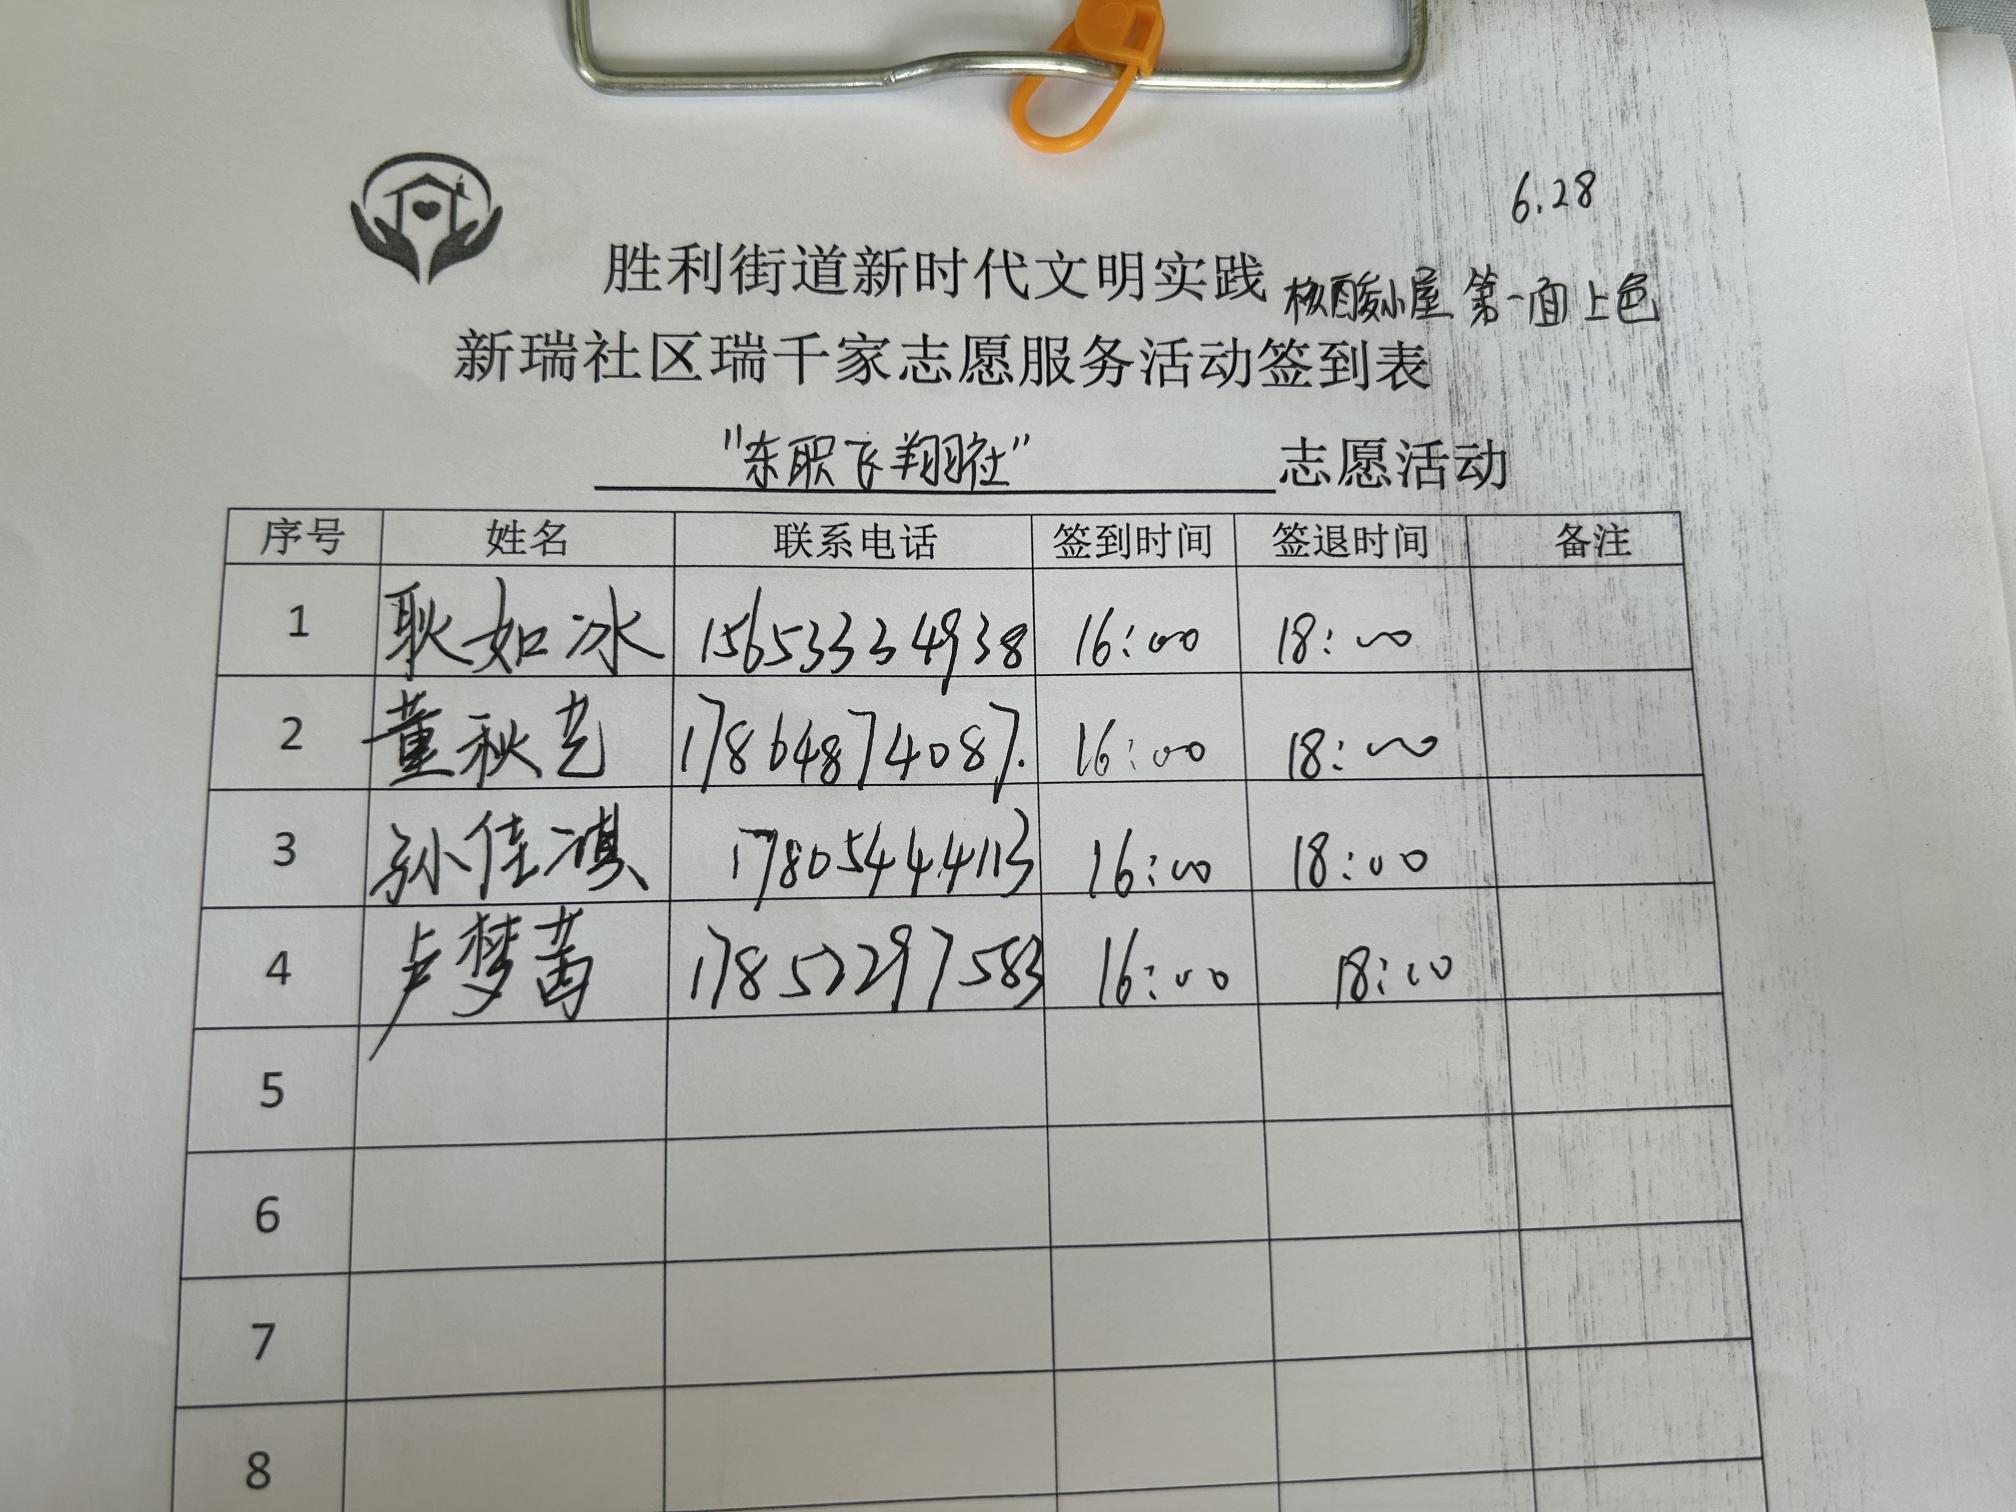 6.28
胜利街道新时代文明实践 核酸小屋 第一面上色
新瑞社区瑞千家志愿服务活动签到表
"东职飞翔社" 志愿活动
序号 姓名 联系电话 签到时间 签退时间 备注
1 耿如冰 15653334938 16:00 18:00
2 董秋艺 17864874087. 16:00 18:00
3 孙佳淇 17805444113 16:00 18:00
4 卢梦茜 17852297583 16:00 18:00
5
6
7
8